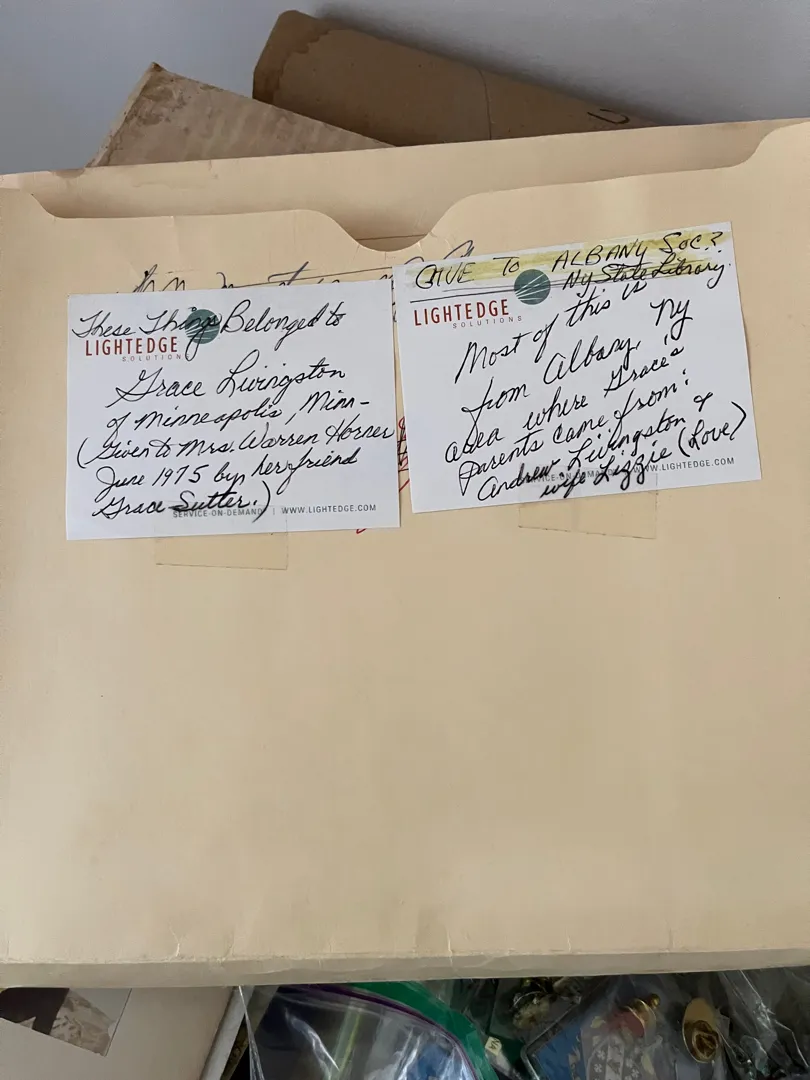 These Things Belonged to
LIGHTEDGE
SOLUTIONS
Grace Livingston
of Minneapolis, Minn-
(Given to Mrs. Warren Horner
June 1975 by her friend
Grace Sutter.)
SERVICE-ON-DEMAND | WWW.LIGHTEDGE.COM
GIVE TO ALBANY SOC?
Ny State Library.
LIGHTEDGE
SOLUTIONS
Most of this is
from Albany, Ny
area where Grace's
parents came from:
Andrew Livingston &
wife Lizzie (Love)
SERVICE-ON-DEMAND | WWW.LIGHTEDGE.COM